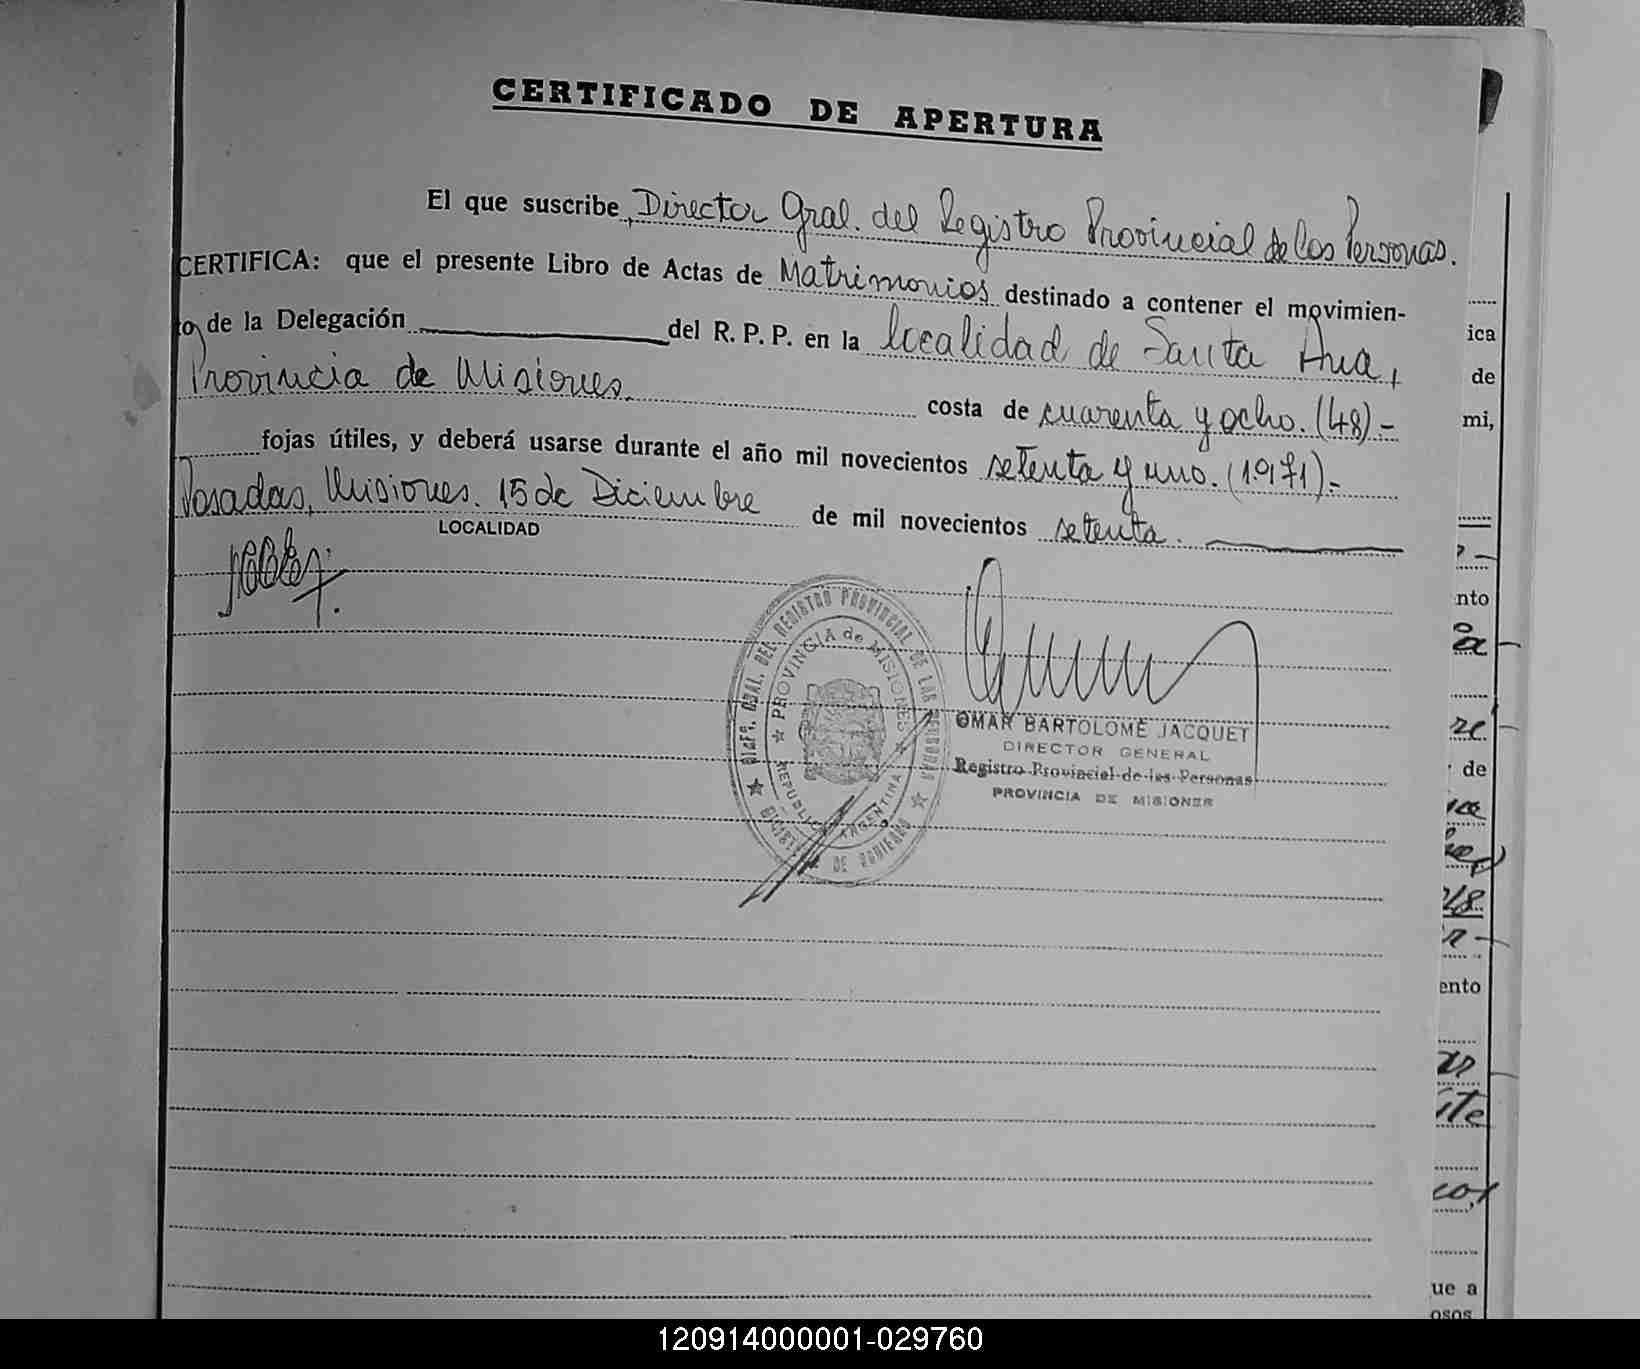 CERTIFICADO DE APERTURA
El que suscribe, Director Gral. del Registro Provincial de las Personas.
CERTIFICA: que el presente Libro de Actas de Matrimonios destinado a contener el movimien-
to de la Delegación del R. P. P. en la localidad de Santa Ana,
Provincia de Misiones. costa de cuarenta y ocho. (48).-
fojas útiles, y deberá usarse durante el año mil novecientos setenta y uno. (1971).-
Posadas, Misiones. 15 de Diciembre de mil novecientos setenta.
LOCALIDAD
GRAL. DEL REGISTRO PROVINCIAL DE LAS PERSONAS
PROVINCIA de MISIONES
REPUBLICA ARGENTINA
MINISTERIO DE GOBIERNO
OMAR BARTOLOME JACQUET
DIRECTOR GENERAL
Registro Provincial de las Personas
PROVINCIA DE MISIONES
ica
de
mi,
nto
de
ento
ue a
osos
120914000001-029760